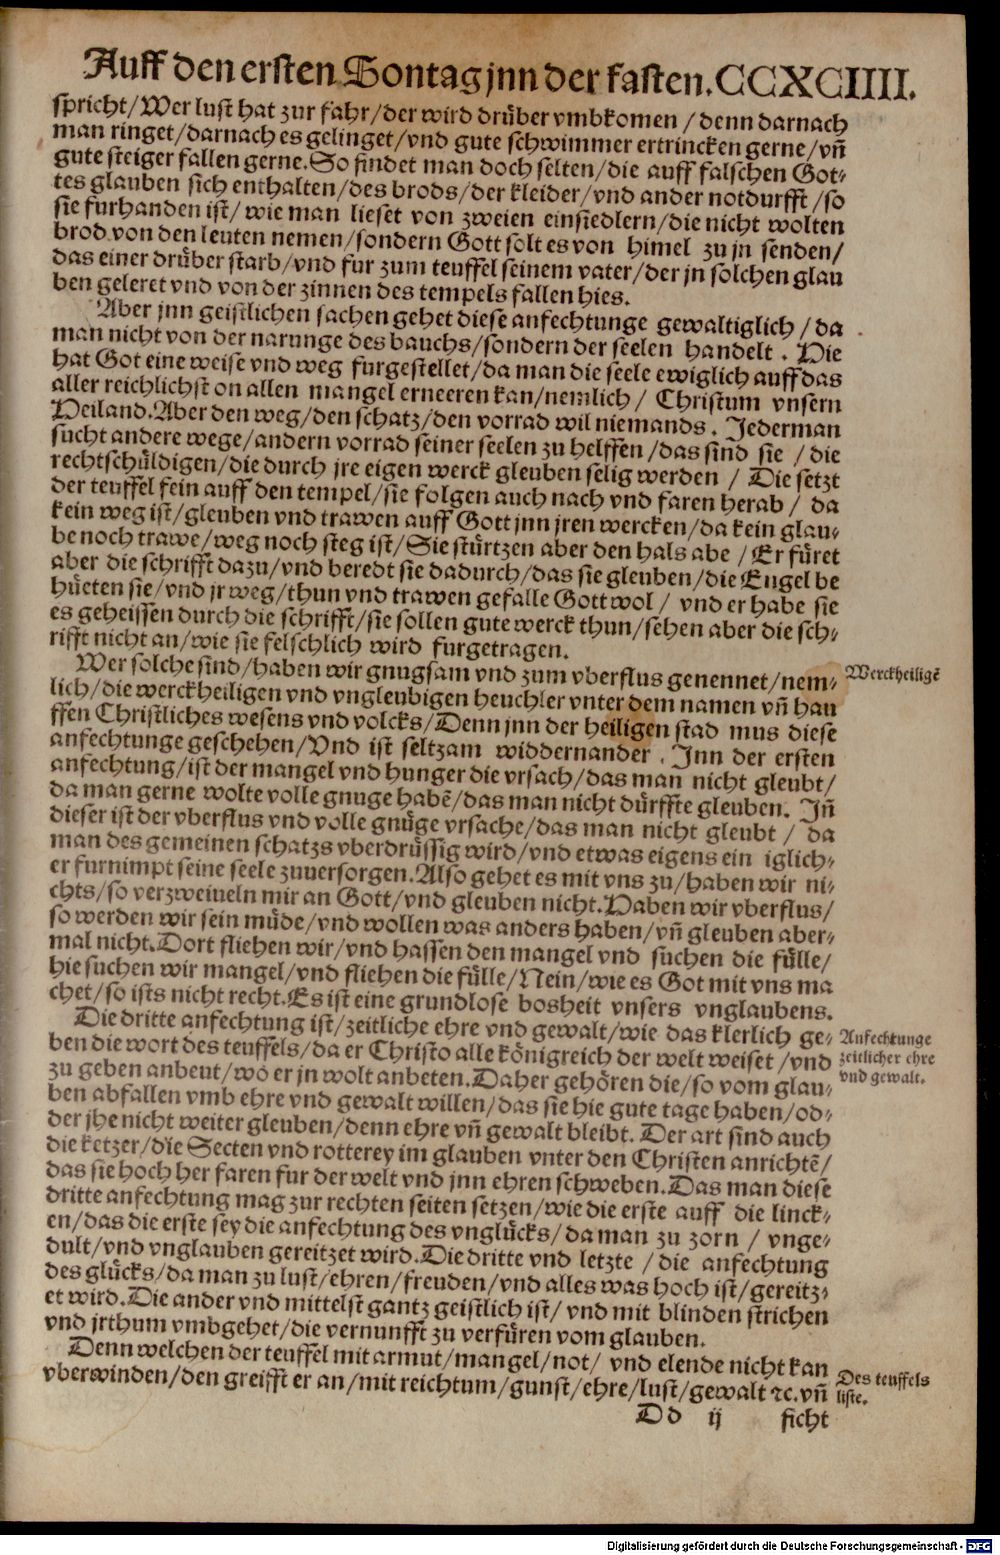 Auff den ersten Sontag jnn der fasten. CCXCIIII.
spricht/Wer lust hat zur fahr/der wird drüber vmbkomen/denn darnach
man ringet/darnach es gelinget/vnd gute schwimmer ertrincken gerne/vñ
gute steiger fallen gerne. So findet man doch selten/die auff falschen Got-
tes glauben sich enthalten/des brods/der kleider/vnd ander notdurfft/so
sie furhanden ist/wie man lieset von zweien einsiedlern/die nicht wolten
brod von den leuten nemen/sondern Gott solt es von himel zu jn senden/
das einer drüber starb/vnd fur zum teuffel seinem vater/der jn solchen glau
ben geleret vnd von der zinnen des tempels fallen hies.
Aber jnn geistlichen sachen gehet diese anfechtunge gewaltiglich/da
man nicht von der narunge des bauchs/sondern der seelen handelt. Hie
hat Got eine weise vnd weg furgestellet/da man die seele ewiglich auff das
aller reichlichst on allen mangel erneeren kan/nemlich/Christum vnsern
Heiland. Aber den weg/den schatz/den vorrad wil niemands. Jederman
sucht andere wege/andern vorrad seiner seelen zu helffen/das sind sie/die
rechtschüldigen/die durch jre eigen werck gleuben selig werden/Die setzt
der teuffel fein auff den tempel/sie folgen auch nach vnd faren herab/da
kein weg ist/gleuben vnd trawen auff Gott jnn jren wercken/da kein glau-
be noch trawe/weg noch steg ist/Sie stürtzen aber den hals abe/Er füret
aber die schrifft dazu/vnd beredt sie dadurch/das sie gleuben/die Engel be
hüeten sie/vnd jr weg/thun vnd trawen gefalle Gott wol/vnd er habe sie
es geheissen durch die schrifft/sie sollen gute werck thun/sehen aber die sch-
rifft nicht an/wie sie felschlich wird furgetragen.
Wer solche sind/haben wir gnugsam vnd zum vberflus genennet/nem-
Werckheiligẽ
lich/die werckheiligen vnd vngleubigen heuchler vnter dem namen vñ hau
ffen Christliches wesens vnd volcks/Denn jnn der heiligen stad mus diese
anfechtunge geschehen/Vnd ist seltzam widdernander. Inn der ersten
anfechtung/ist der mangel vnd hunger die vrsach/das man nicht gleubt/
da man gerne wolte volle gnuge habẽ/das man nicht dürffte gleuben. Jñ
dieser ist der vberflus vnd volle gnüge vrsache/das man nicht gleubt/da
man des gemeinen schatzs vberdrüssig wird/vnd etwas eigens ein iglich-
er furnimpt seine seele zuuersorgen. Also gehet es mit vns zu/haben wir ni-
chts/so verzweiueln mir an Gott/vnd gleuben nicht. Haben wir vberflus/
so werden wir sein müde/vnd wollen was anders haben/vñ gleuben aber-
mal nicht. Dort fliehen wir/vnd hassen den mangel vnd suchen die fülle/
hie suchen wir mangel/vnd fliehen die fülle/Nein/wie es Got mit vns ma
chet/so ists nicht recht. Es ist eine grundlose bosheit vnsers vnglaubens.
Die dritte anfechtung ist/zeitliche ehre vnd gewalt/wie das klerlich ge-
Anfechtunge
zeitlicher ehre
vnd gewalt.
ben die wort des teuffels/da er Christo alle königreich der welt weiset/vnd
zu geben anbeut/wo er jn wolt anbeten. Daher gehören die/so vom glau-
ben abfallen vmb ehre vnd gewalt willen/das sie hie gute tage haben/od-
der jhe nicht weiter gleuben/denn ehre vñ gewalt bleibt. Der art sind auch
die ketzer/die Secten vnd rotterey im glauben vnter den Christen anrichtẽ/
das sie hoch her faren fur der welt vnd jnn ehren schweben. Das man diese
dritte anfechtung mag zur rechten seiten setzen/wie die erste auff die linck-
en/das die erste sey die anfechtung des vnglücks/da man zu zorn/vnge-
dult/vnd vnglauben gereitzet wird. Die dritte vnd letzte/die anfechtung
des glücks/da man zu lust/ehren/freuden/vnd alles was hoch ist/gereitz-
et wird. Die ander vnd mittelst gantz geistlich ist/vnd mit blinden strichen
vnd jrthum vmbgehet/die vernunfft zu verfüren vom glauben.
Denn welchen der teuffel mit armut/mangel/not/vnd elende nicht kan
Des teuffels
liste.
vberwinden/den greifft er an/mit reichtum/gunst/ehre/lust/gewalt ꝛc. vñ
Dd ij ficht
Digitalisierung gefördert durch die Deutsche Forschungsgemeinschaft - DFG